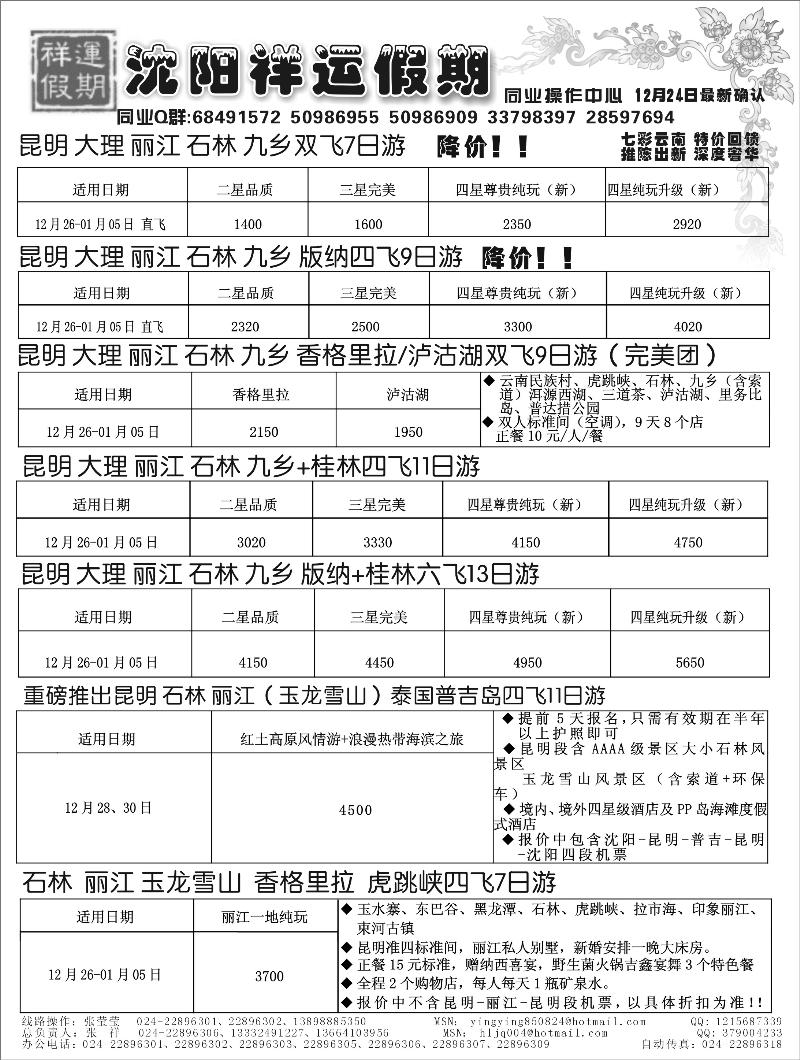 祥運
假期
沈阳祥运假期
同业操作中心 12月24日最新确认
同业Q群:68491572 50986955 50986909 33798397 28597694
昆明 大理 丽江 石林 九乡双飞7日游 降价！！
七彩云南 特价回馈
推陈出新 深度奢华
适用日期 二星品质 三星完美 四星尊贵纯玩（新） 四星纯玩升级（新）
12月26-01月05日 直飞 1400 1600 2350 2920
昆明 大理 丽江 石林 九乡 版纳四飞9日游 降价！！
适用日期 二星品质 三星完美 四星尊贵纯玩（新） 四星纯玩升级（新）
12月26-01月05日 直飞 2320 2500 3300 4020
昆明 大理 丽江 石林 九乡 香格里拉/泸沽湖双飞9日游（完美团）
适用日期 香格里拉 泸沽湖
12月26-01月05日 2150 1950
◆ 云南民族村、虎跳峡、石林、九乡（含索
道）洱源西湖、三道茶、泸沽湖、里务比
岛、普达措公园
◆ 双人标准间（空调），9天8个店
正餐10元/人/餐
昆明 大理 丽江 石林 九乡+桂林四飞11日游
适用日期 二星品质 三星完美 四星尊贵纯玩（新） 四星纯玩升级（新）
12月26-01月05日 3020 3330 4150 4750
昆明 大理 丽江 石林 九乡 版纳+桂林六飞13日游
适用日期 二星品质 三星完美 四星尊贵纯玩（新） 四星纯玩升级（新）
12月26-01月05日 4150 4450 4950 5650
重磅推出昆明 石林 丽江（玉龙雪山）泰国普吉岛四飞11日游
适用日期 红土高原风情游+浪漫热带海滨之旅
12月28、30日 4500
◆ 提前5天报名,只需有效期在半年
以上护照即可
◆ 昆明段含AAAA级景区大小石林风
景区
玉龙雪山风景区（含索道+环保
车）
◆ 境内、境外四星级酒店及PP岛海滩度假
式酒店
◆ 报价中包含沈阳-昆明-普吉-昆明
-沈阳四段机票
石林 丽江 玉龙雪山 香格里拉 虎跳峡四飞7日游
适用日期 丽江一地纯玩
12月26-01月05日 3700
◆ 玉水寨、东巴谷、黑龙潭、石林、虎跳峡、拉市海、印象丽江、
束河古镇
◆ 昆明准四标准间，丽江私人别墅，新婚安排一晚大床房。
◆ 正餐15元标准，赠纳西喜宴，野生菌火锅吉鑫宴舞3个特色餐
◆ 全程2个购物店，每人每天1瓶矿泉水。
◆ 报价中不含昆明-丽江-昆明段机票，以具体折扣为准!!
线路操作：张莹莹 024-22896301、22896302、13898885350 MSN: yingying850824@hotmail.com QQ:1215687339
总负责人：张 祥 024-22896306、13332491227、13664103956 MSN: hljq004@hotmail.com QQ: 379004233
办公电话：024 22896301、22896302、22896303、22896305、22896306、22896307、22896309 自动传真：024 22896318